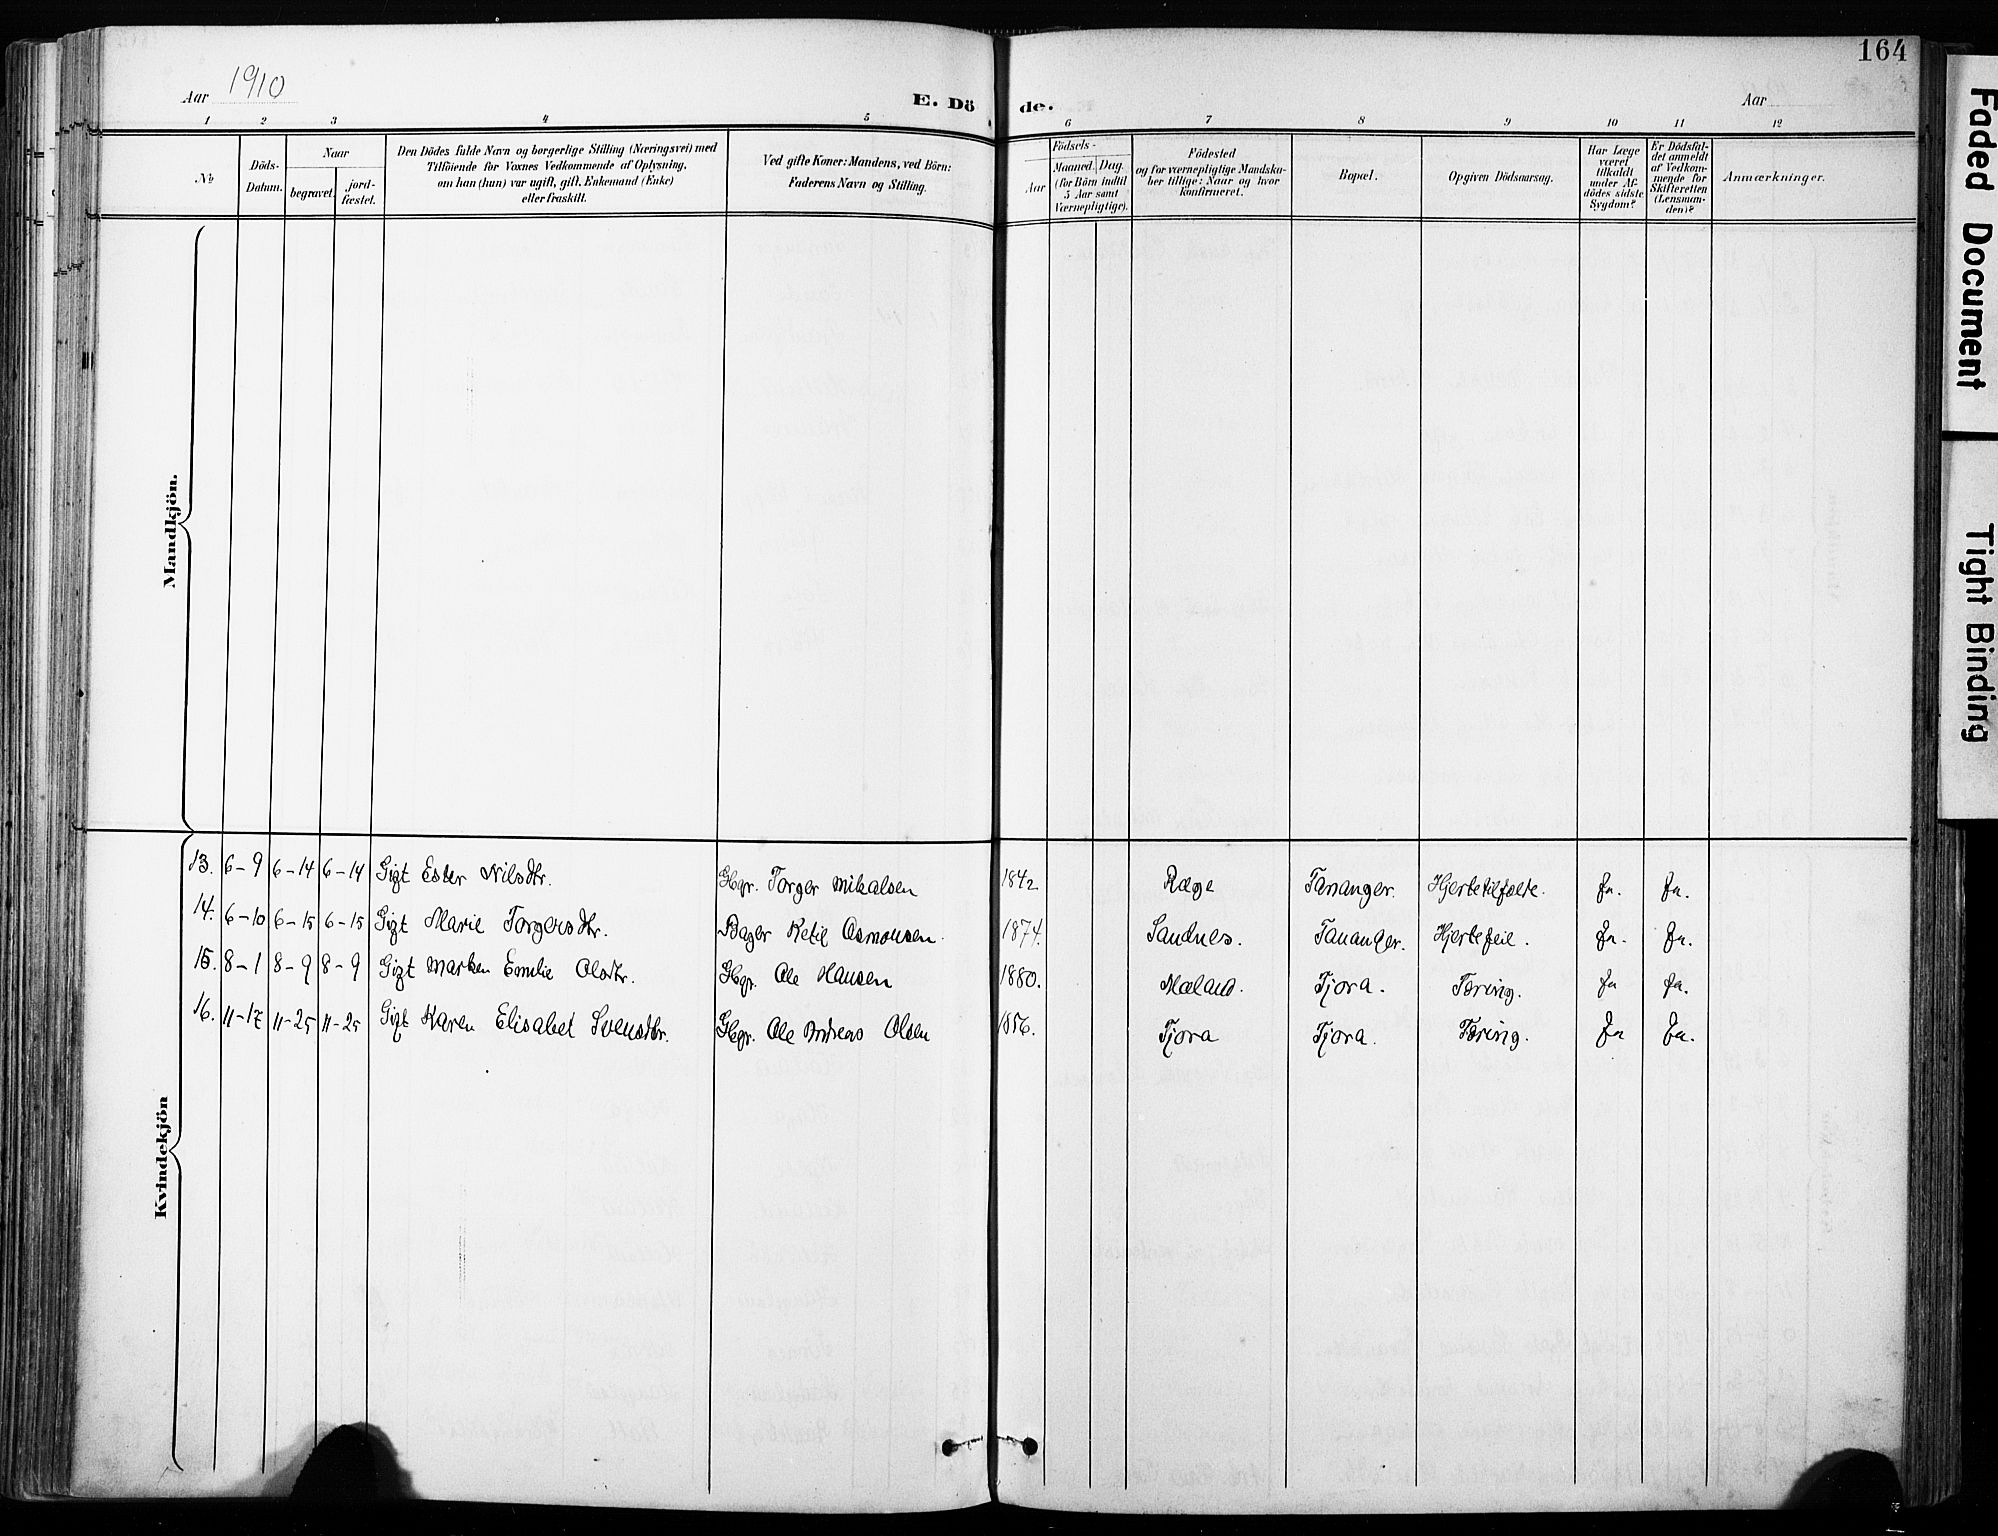 164
Aar 1910
E. Dö de.
Aar
1 2 3 4 5 6 7 8 9 10 11 12
No
Döds-
Datum.
Naar
begravet.
jord-
fæstet.
Den Dödes fulde Navn og borgerlige Stilling (Næringsvei) med
Tilföiende for Voxnes Vedkommende af Oplysning,
om han (hun) var ugift, gift, Enkemand (Enke)
eller fraskilt.
Ved gifte Koner: Mandens, ved Börn:
Faderens Navn og Stilling.
Födsels-
Aar
Maaned.
Dag.
(for Börn indtil
5 Aar samt
Værnepligtige).
Födested
og for værnepligtige Mandska-
ber tillige: Naar og hvor
konfirmeret.
Bopæl.
Opgiven Dödsaarsag.
Har Læge
været
tilkaldt
under Af-
dödes sidste
Sygdom?
Er Dödsfal-
det anmeldt
af Vedkom-
mende for
Skifteretten
(Lensman-
den)?
Anmærkninger.
Mandkjön.
Kvindekjön
13. 6-9 6-14 6-14 Gift Ester Nilsdtr. Gbgr. Torger Mikalsen 1842 Ræge Tananger. Hjertetilfælde. Ja. Ja.
14. 6-10 6-15 6-15 Gift Marie Torgersdtr. Bager Ketil Osmonsen. 1874. Sandnes. Tananger. Hjertefeil. Ja. Ja.
15. 8-1 8-9 8-9 Gift Marken Emilie Olsdtr. Gbgr. Ole Hansen 1880. Mæland. Tjora. Tæring. Ja Ja.
16. 11-17 11-25 11-25 Gift Karen Elisabet Svensdtr. Gbgr. Ole Andreas Olsen 1856. Tjora Tjora. Tæring. Ja Ja.
Faded Document
Tight Binding